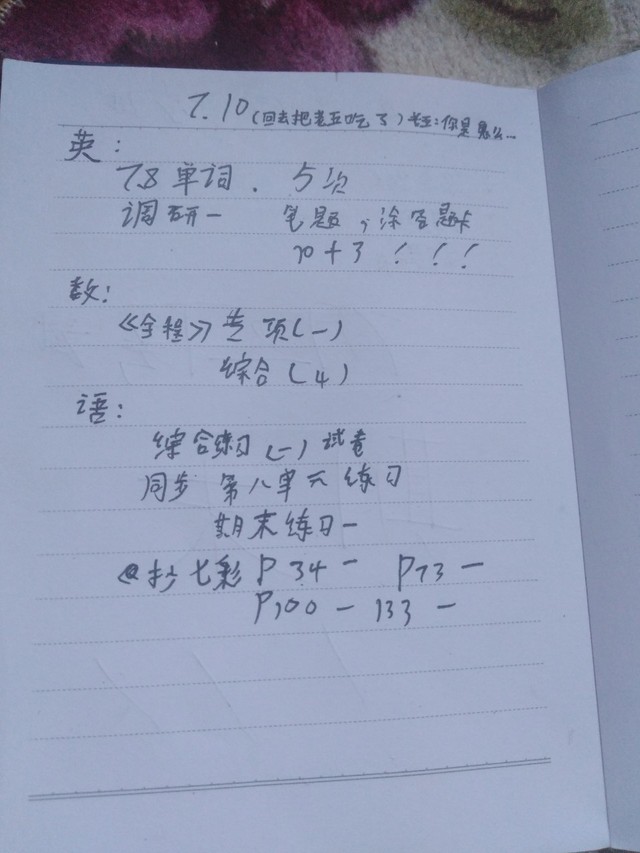 7.10(回去把老五吃了)老五:你是魔么…
英:
78单词. 5次
调研一 笔题,涂答题卡
70+3!!!
数:
《全程》专项(一)
综合(4)
语:
综合练习(一)试卷
同步 第八单元练习
期末练习一
抄七彩P34一 P73一
P100一133一